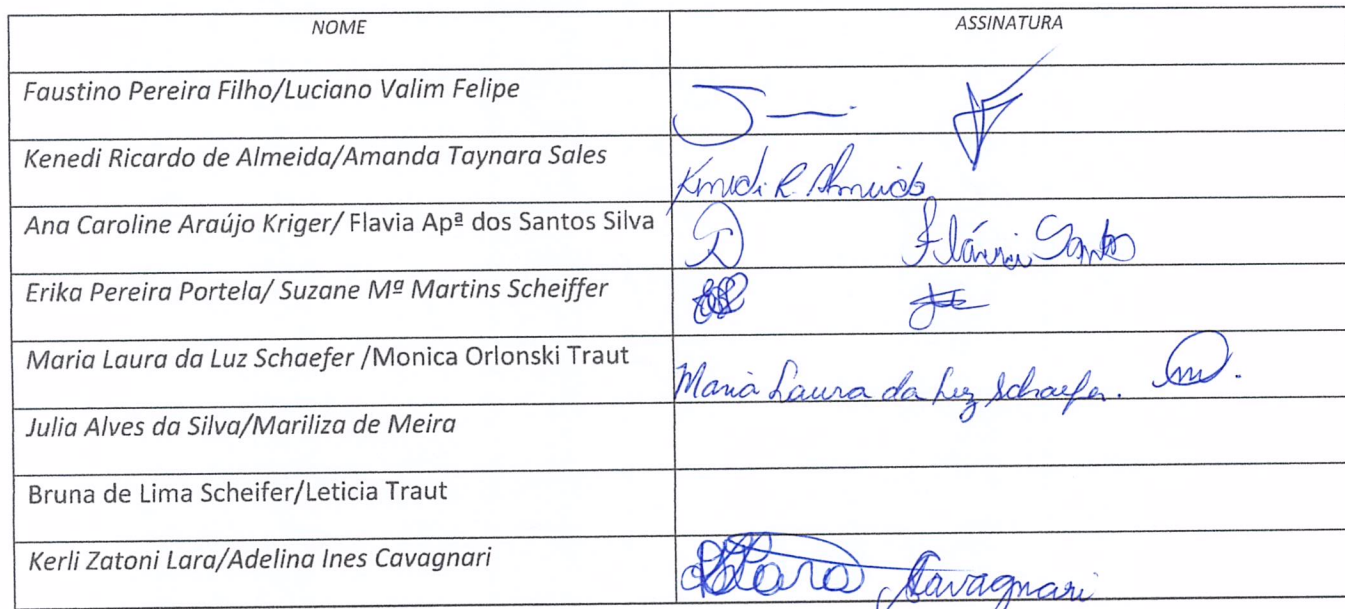 NOME ASSINATURA
Faustino Pereira Filho/Luciano Valim Felipe
Kenedi Ricardo de Almeida/Amanda Taynara Sales Kenedi R. Almeida
Ana Caroline Araújo Kriger/ Flavia Apª dos Santos Silva Flávia Santos
Erika Pereira Portela/ Suzane Mª Martins Scheiffer
Maria Laura da Luz Schaefer /Monica Orlonski Traut Maria Laura da Luz Schaefer.
Julia Alves da Silva/Mariliza de Meira
Bruna de Lima Scheifer/Leticia Traut
Kerli Zatoni Lara/Adelina Ines Cavagnari Lara Cavagnari